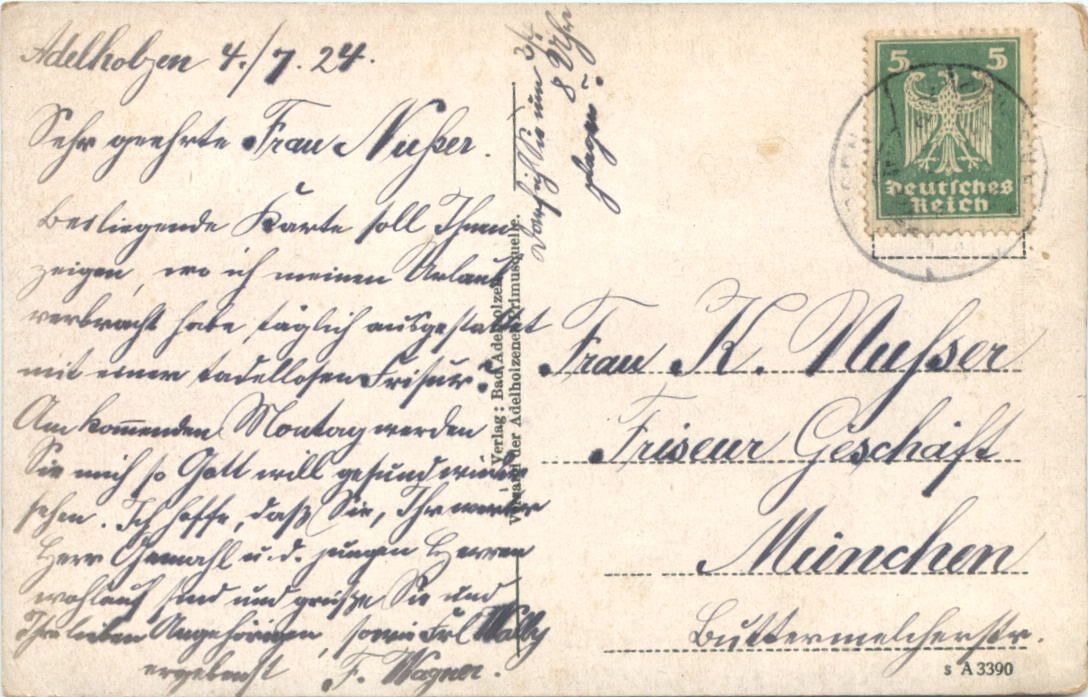 Adelholzen 4./7. 24.
Sehr geehrte Frau Nußer.
Beiliegende Karte soll Ihnen
zeigen, wo ich meinen Urlaub
verbracht habe täglich ausgestattet
mit einer tadellosen Frisur.
Am kommenden Montag werden
Sie mich so Gott will gesund wieder
sehen. Ich hoffe, daß Sie, Ihr werter
Herr Gemahl u. d. jungen Herren
wohlauf sind und grüße Sie und
Ihre lieben Angehörigen, sowie Frl Wally
ergebenst F. Wagner.
Darf ich Sie um
8 Uhr
plagen?
Verlag: Bad Adelholzen
Versand der Adelholzener Primusquelle.
5 5
Deutsches
Reich
Frau K. Nußser
Friseur Geschäft
München
Buttermelcherstr.
s A 3390